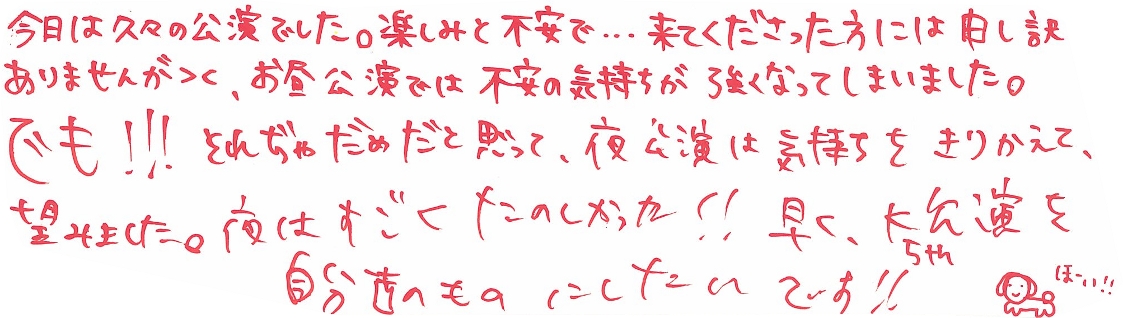 今日は久々の公演でした。楽しみと不安で…来てくださった方には申し訳
ありませんが><、お昼公演では不安の気持ちが強くなってしまいました。
でも!!! それぢゃだめだと思って、夜公演は気持ちをきりかえて、
望みました。夜はすごくたのしかった!! 早く、K公演を
ちゃん
自分達のものにしたいです!!
ほーい!!